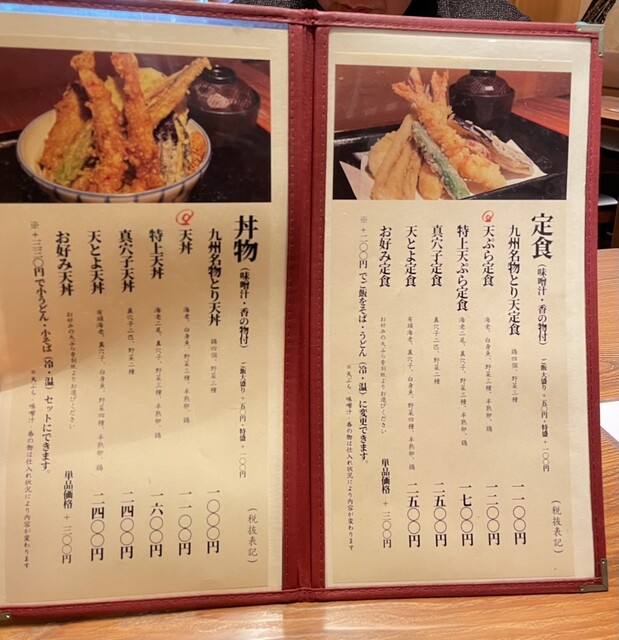 定食（味噌汁・香の物付） ご飯大盛り +五〇円・特盛 +一〇〇円
（税抜表記）
九州名物とり天定食 鶏四個、野菜三種 一一〇〇円
天ぷら定食 海老、白身魚、野菜三種、半熟卵、鶏 一二〇〇円
特上天ぷら定食 海老二尾、真穴子、野菜三種、半熟卵、鶏 一七〇〇円
真穴子定食 真穴子二匹、野菜二種 二五〇〇円
天とよ定食 有頭海老、真穴子、白身魚、野菜四種、半熟卵、鶏 二五〇〇円
お好み定食 お好みの天ぷらを別紙よりお選びください 単品価格 +三〇〇円
※+二〇〇円でご飯をそば・うどん（冷・温）に変更できます。
※天ぷら・味噌汁・香の物は仕入れ状況により内容が変わります
丼物（味噌汁・香の物付） ご飯大盛り +五〇円・特盛 +一〇〇円
（税抜表記）
九州名物とり天丼 鶏四個、野菜三種 一〇〇〇円
天丼 海老、白身魚、野菜三種、半熟卵、鶏 一一〇〇円
特上天丼 海老二尾、真穴子、野菜三種、半熟卵、鶏 一六〇〇円
真穴子天丼 真穴子二匹、野菜二種 二四〇〇円
天とよ天丼 有頭海老、真穴子、白身魚、野菜四種、半熟卵、鶏 二四〇〇円
お好み天丼 お好みの天ぷらを別紙よりお選びください 単品価格 +三〇〇円
※+三三〇円で小うどん・小そば（冷・温）セットにできます。
※天ぷら・味噌汁・香の物は仕入れ状況により内容が変わります